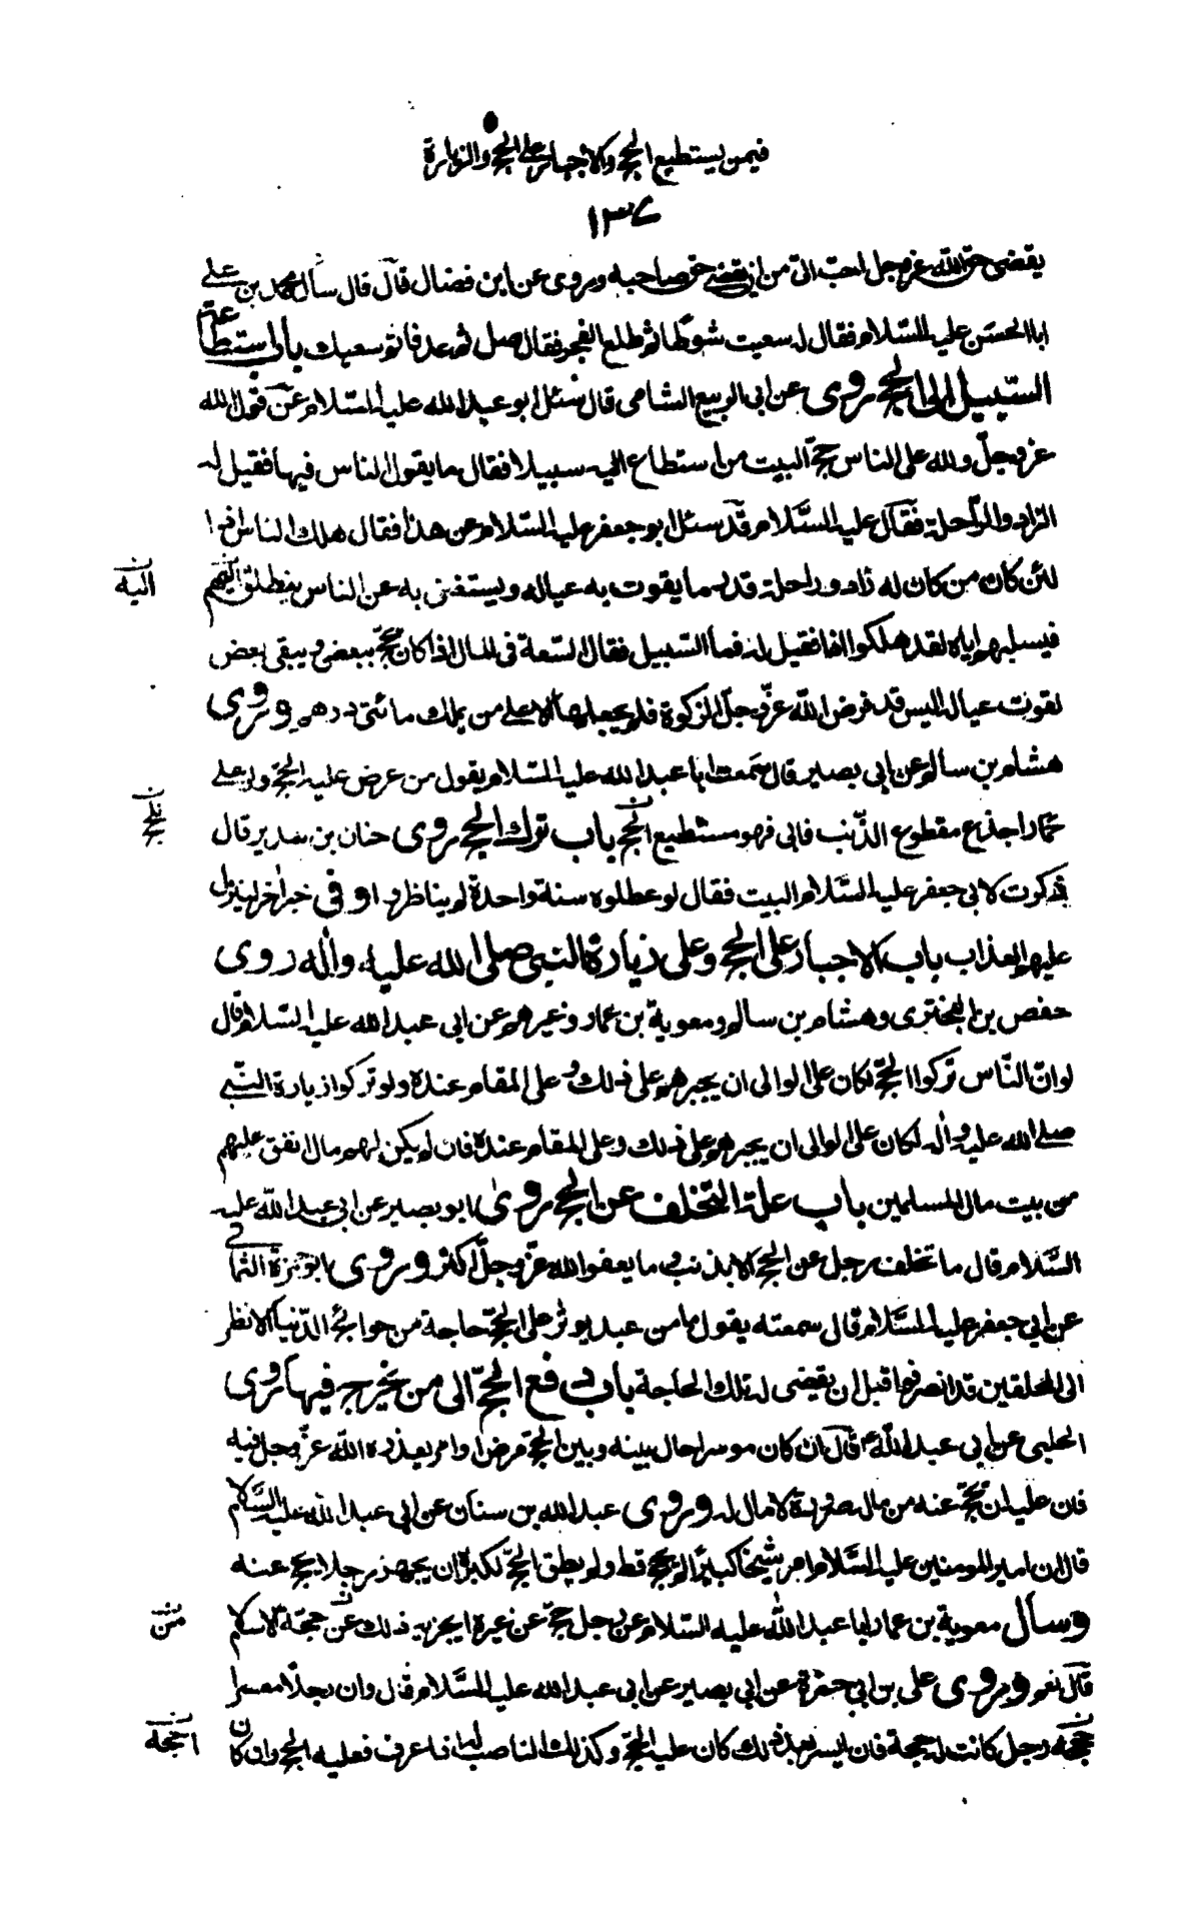 فيمن يستطيع الحج والاجبار على الحج والزيارة
١٣٧
يقضى حق الله عز وجل احب الىّ من ان يقضى حق صاحبه وروى عن ابن فضال قال قال سأل محمد بن على
ابا الحسن عليه السلام فقال له سعيت شوطا ثم طلع الفجر فقال صل ثم عد فاتم سعيك باب استطاعة
السّبيل الى الحج روى عن ابى الربيع الشامى قال سئل ابو عبد الله عليه السلام عن قول الله
عز وجلّ ولله على الناس حجّ البيت من استطاع اليه سبيلا فقال ما يقول الناس فيها فقيل له
الزاد والرّاحلة فقال عليه السَّلام قد سئل ابو جعفر عليه السّلام عن هذا فقال هلك الناس اذا
لئن كان من كان له زاد وراحلة قدر ما يقوت به عياله ويستغنى به عن الناس ينطلق اليهم
اليه
فيسلبهم اياه لقد هلكوا اذا فقيل له فما السّبيل فقال السّعة فى المال اذا كان يحجّ ببعض ويبقى بعض
لقوت عياله اليس قد فرض الله عزّ وجلّ الزكوة فلم يجعلها الا على من يملك مائتى درهم وروى
هشام بن سالم عن ابى بصير قال سمعت ابا عبد الله عليه السّلام يقول من عرض عليه الحجّ ولو على
حمار اجذع مقطوع الذّنب فابى فهو مستطيع الحجّ باب ترك الحج روى حنان بن سدير قال
للحج
ذكرت لابى جعفر عليه السَّلام البيت فقال لو عطلوه سنة واحدة لم يناظروا وفى خبر اخر لينزل
عليهم العذاب باب الاجبار على الحج وعلى زيارة النبى صلى الله عليه واله روى
حفص بن البخترى وهشام بن سالم ومعوية بن عمار وغيرهم عن ابى عبد الله عليه السّلام قال
لو انّ النّاس تركوا الحجّ لكان على الوالى ان يجبرهم على ذلك وعلى المقام عنده ولو تركوا زيارة النّبى
صلى الله عليه واله لكان على الوالى ان يجبرهم على ذلك وعلى المقام عنده فان لم يكن لهم مال انفق عليهم
من بيت مال المسلمين باب علة التخلف عن الحج روى ابو بصير عن ابى عبد الله عليه
السَّلام قال ما تخلف رجل عن الحج الا بذنب وما يعفو الله عزّ وجلّ اكثر وروى ابو حمزة الثمالى
عن ابى جعفر عليه السَّلام قال سمعته يقول ما من عبد يؤثر على الحجّ حاجة من حوائج الدّنيا الا نظر
الى المحلقين قد انصرفوا قبل ان يقضى له تلك الحاجة باب دفع الحجّ الى من يخرج فيها روى
الحلبى عن ابى عبد الله ع قال ان كان موسرا حال بينه وبين الحجّ مرض او امر يعذره الله عزّ وجل فيه
فان عليه ان يحجّ عنه من ماله صرورة لا مال له وروى عبد الله بن سنان عن ابى عبد الله عليه السَّلام
قال ان امير المومنين عليه السَّلام امر شيخا كبيرًا لم يحج قط ولم يطق الحجّ لكبره ان يجهز رجلا يحج عنه
وسأل معوية بن عمار ابا عبد الله عليه السّلام عن رجل حجّ عن غيره ايجزيه ذلك عن حجّة الاسلام
من
قال نعم وروى على بن ابى حمزة عن ابى بصير عن ابى عبد الله عليه السَّلام قال وان رجلا معسرا
حجّه رجل كانت له حجة فان ايسر بعد ذلك كان عليه الحجّ وكذلك الناصب اذا عرف فعليه الحج وان كان
احجّه